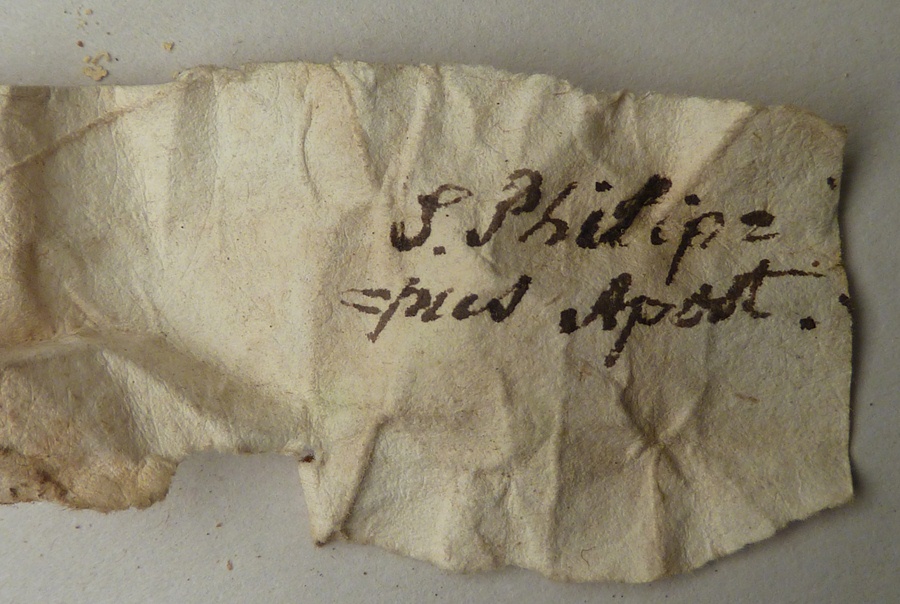 S. Philip=
=pus Apost.